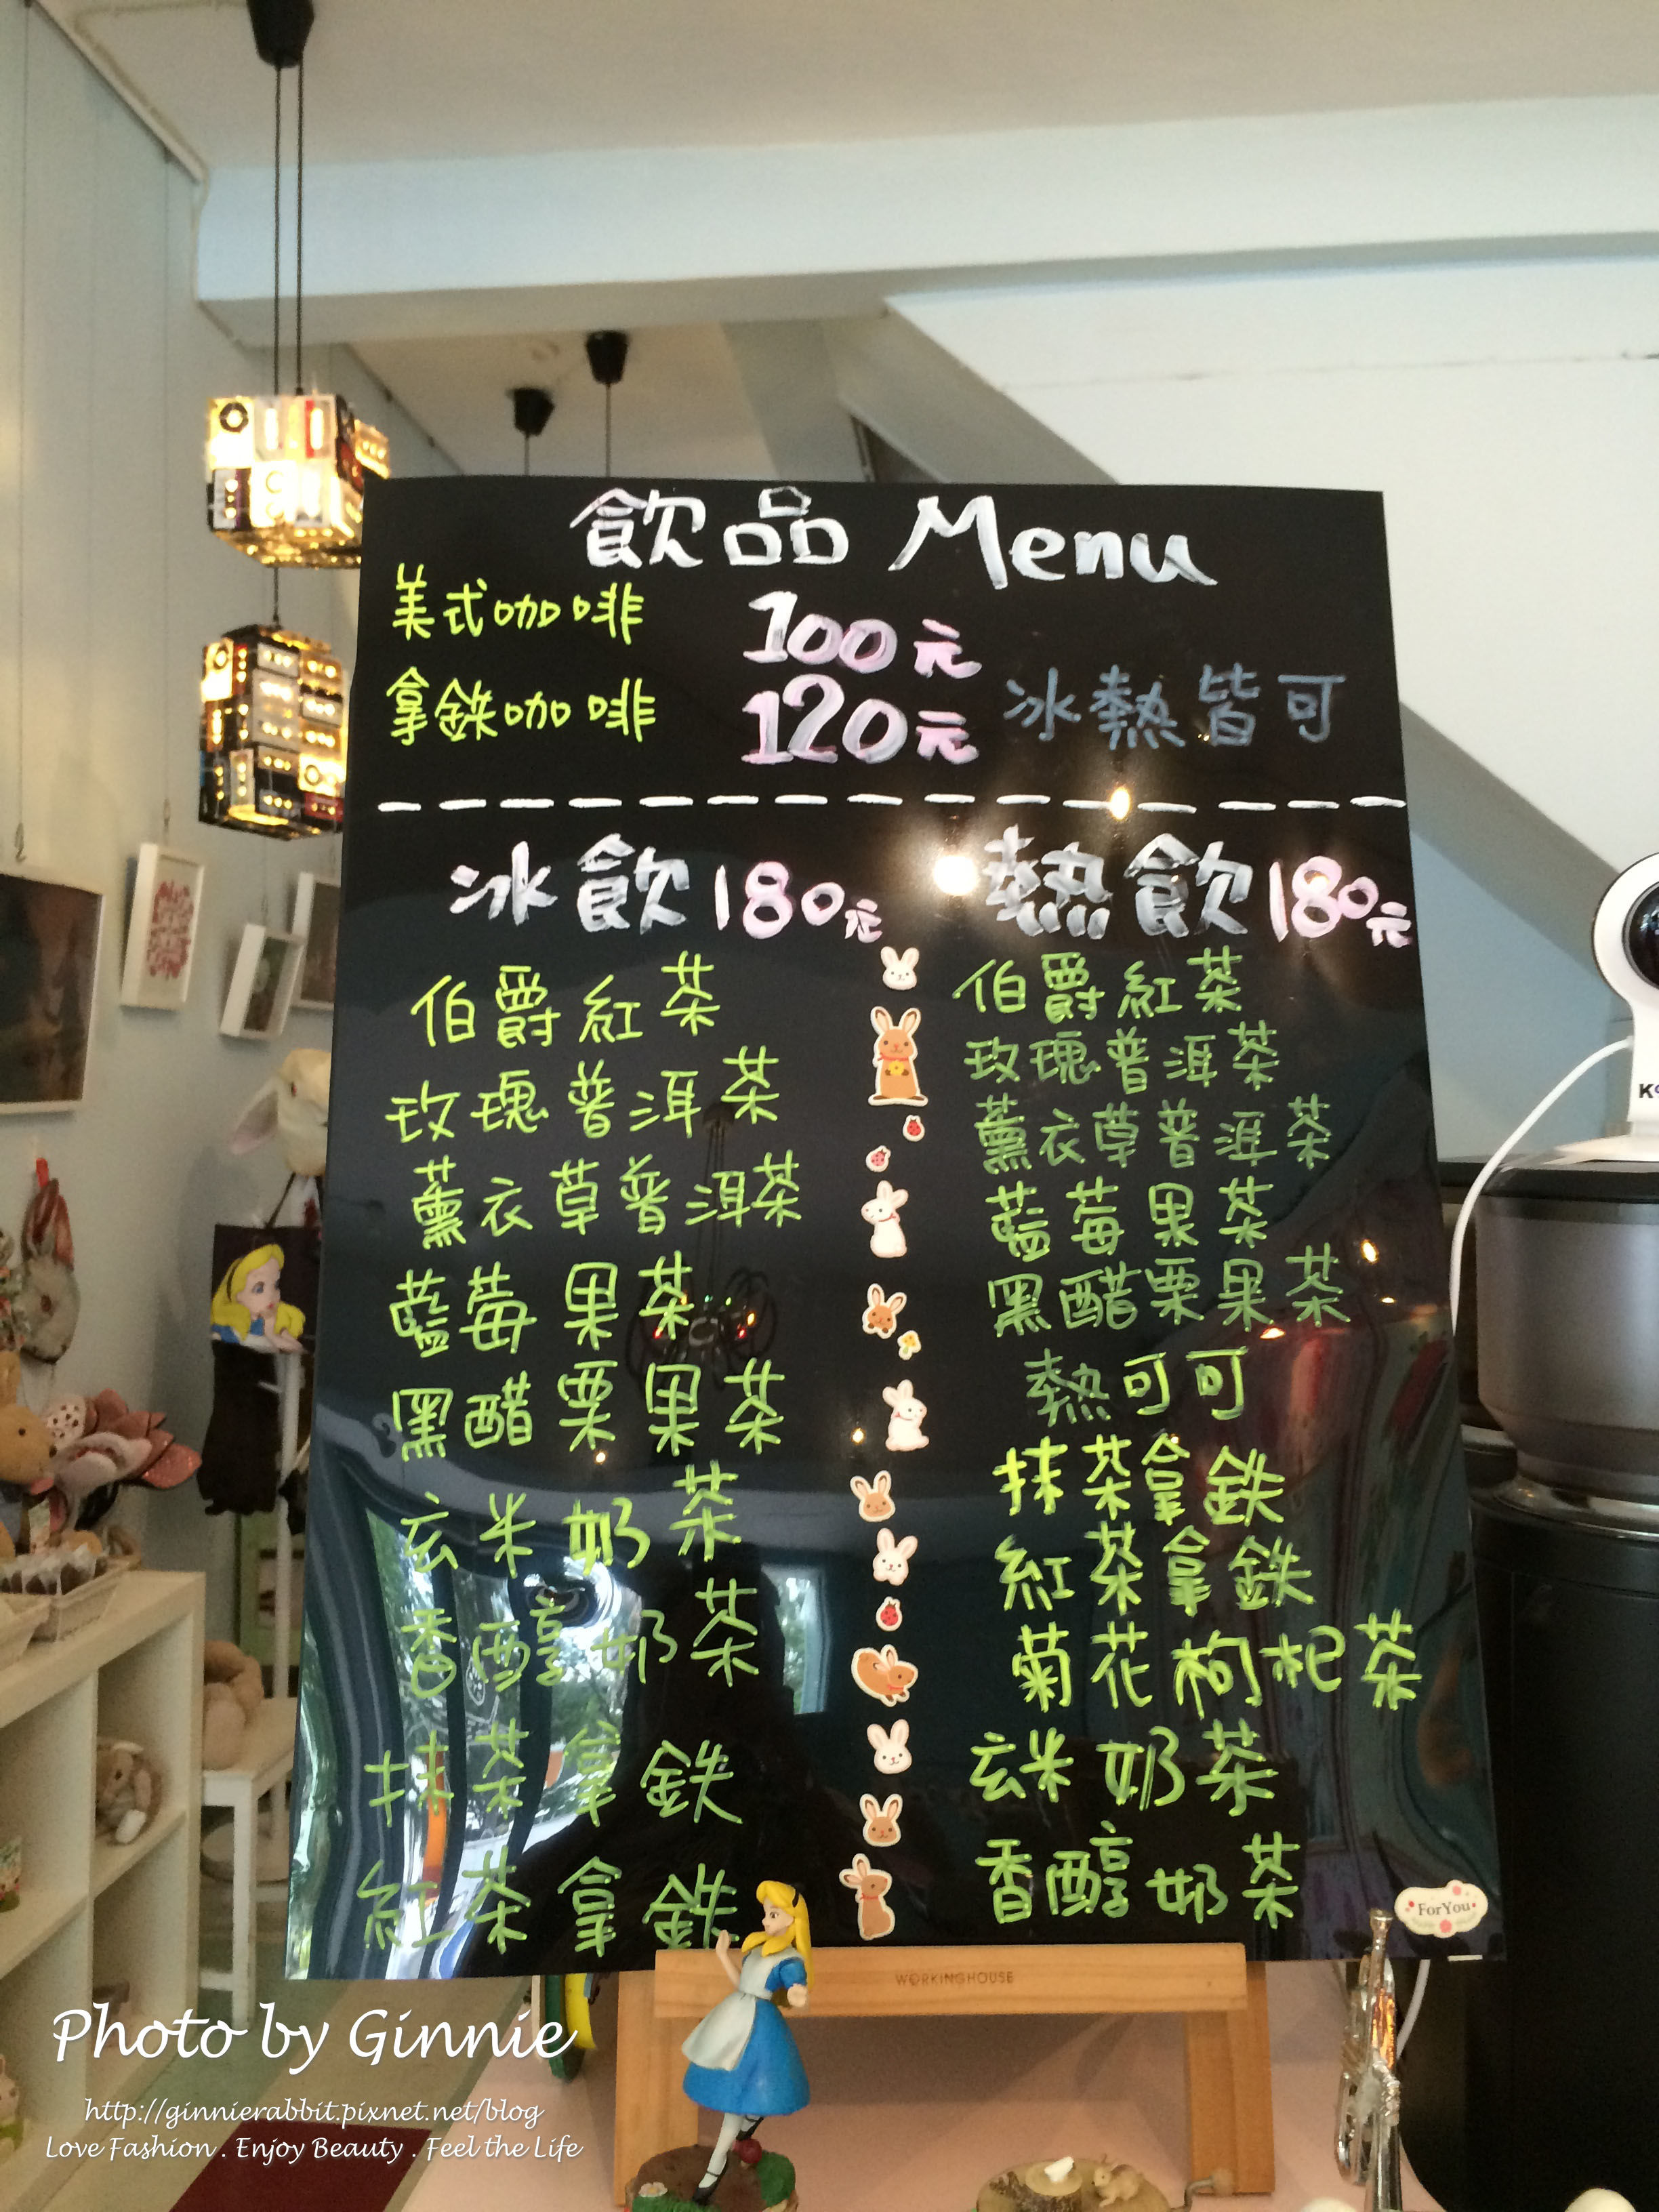 飲品 Menu
美式咖啡 100元
拿鉄咖啡 120元 冰熱皆可
冰飲 180元
伯爵紅茶
玫瑰普洱茶
薰衣草普洱茶
藍莓果茶
黑醋栗果茶
玄米奶茶
香醇奶茶
抹茶拿鉄
紅茶拿鉄
熱飲 180元
伯爵紅茶
玫瑰普洱茶
薰衣草普洱茶
藍莓果茶
黑醋栗果茶
熱可可
抹茶拿鉄
紅茶拿鉄
菊花枸杞茶
玄米奶茶
香醇奶茶
ForYou
WORKINGHOUSE
Photo by Ginnie
http://ginnierabbit.pixnet.net/blog
Love Fashion . Enjoy Beauty . Feel the Life